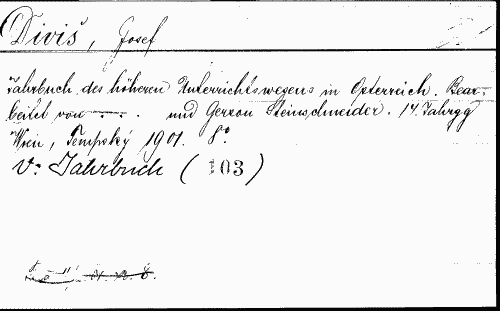 Diviš, Josef
Jahrbuch des höheren Unterrichtswegens in Österreich. Bear-
beitet von —. und Gerron Steinschneider. 14. Jahrgg
Wien, Tempský 1901. 8°
V: Jahrbuch (103)